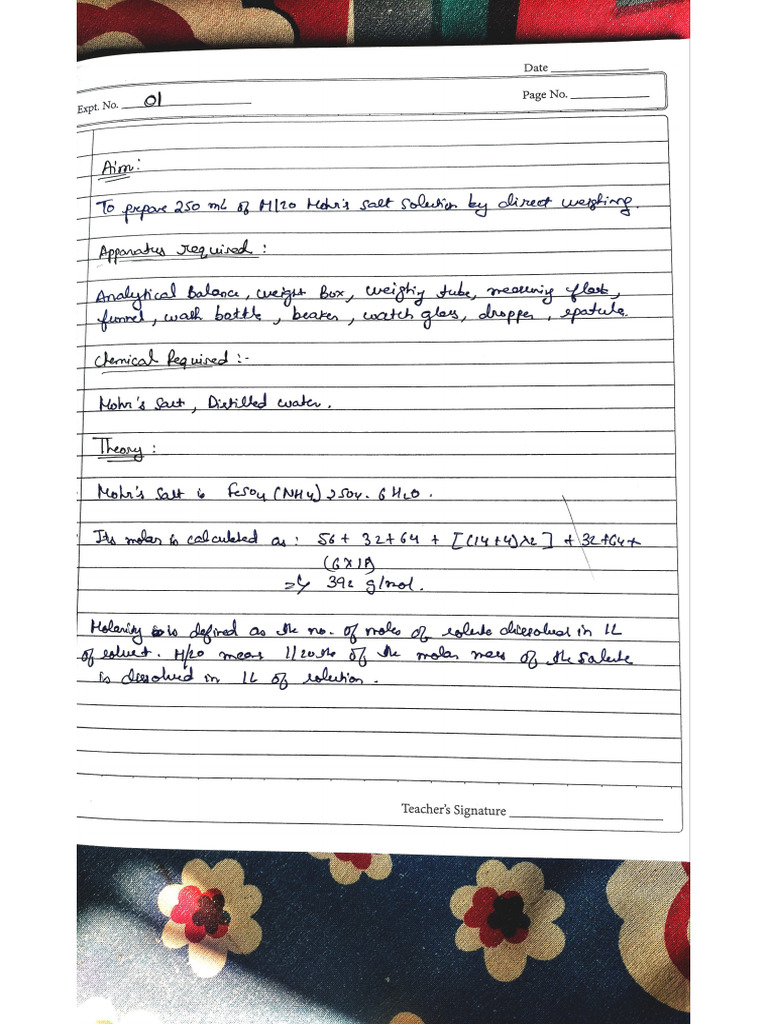 Date
Expt. No. 01
Page No.
Aim:
To prepare 250 mL of M/20 Mohr's salt solution by direct weighing.
Apparatus required :
Analytical Balance, weight Box, weighing tube, measuring flask,
funnel, wash bottle, beaker, watch glass, dropper, spatula.
Chemical Required :-
Mohr's Salt, Distilled water.
Theory :
Mohr's Salt is FeSO4 (NH4)2SO4. 6H2O.
Its molar is calculated as: 56+ 32+64 + [(14+4)x2] + 32+64+
(6X18)
=> 392 g/mol.
Molarity is defined as the no. of moles of solute dissolved in 1L
of solvent. M/20 means 1/20the of the molar mass of the solute
is dissolved in 1L of solution.
Teacher's Signature